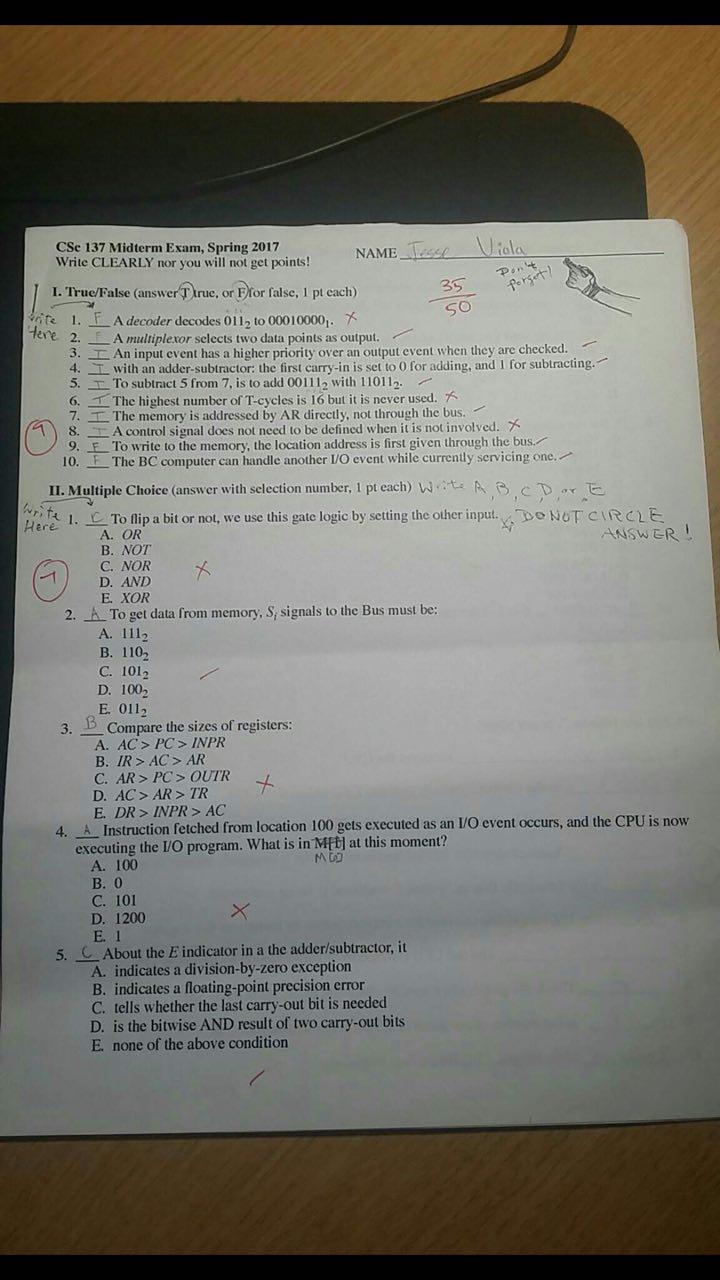 CSc 137 Midterm Exam, Spring 2017
NAME Jesse Viola
Write CLEARLY nor you will not get points!
Don't forget!
I. True/False (answer T true, or F for false, 1 pt each)
35
50
Write Here
1. F A decoder decodes 011₂ to 00010000₁. ×
2. F A multiplexor selects two data points as output.
3. T An input event has a higher priority over an output event when they are checked.
4. T with an adder-subtractor: the first carry-in is set to 0 for adding, and 1 for subtracting.
5. T To subtract 5 from 7, is to add 00111₂ with 11011₂.
6. T The highest number of T-cycles is 16 but it is never used. ×
7. T The memory is addressed by AR directly, not through the bus.
8. T A control signal does not need to be defined when it is not involved. ×
9. F To write to the memory, the location address is first given through the bus.
10. F The BC computer can handle another I/O event while currently servicing one.
II. Multiple Choice (answer with selection number, 1 pt each) Write A, B, C, D, or E
Write Here
1. C To flip a bit or not, we use this gate logic by setting the other input. DO NOT CIRCLE
ANSWER!
A. OR
B. NOT
C. NOR ×
D. AND
E. XOR
2. A To get data from memory, Sᵢ signals to the Bus must be:
A. 111₂
B. 110₂
C. 101₂
D. 100₂
E. 011₂
3. B Compare the sizes of registers:
A. AC > PC > INPR
B. IR > AC > AR
C. AR > PC > OUTR ×
D. AC > AR > TR
E. DR > INPR > AC
4. A Instruction fetched from location 100 gets executed as an I/O event occurs, and the CPU is now
executing the I/O program. What is in at this moment?
M[0]
A. 100
B. 0
C. 101
D. 1200 ×
E. 1
5. C About the E indicator in a the adder/subtractor, it
A. indicates a division-by-zero exception
B. indicates a floating-point precision error
C. tells whether the last carry-out bit is needed
D. is the bitwise AND result of two carry-out bits
E. none of the above condition